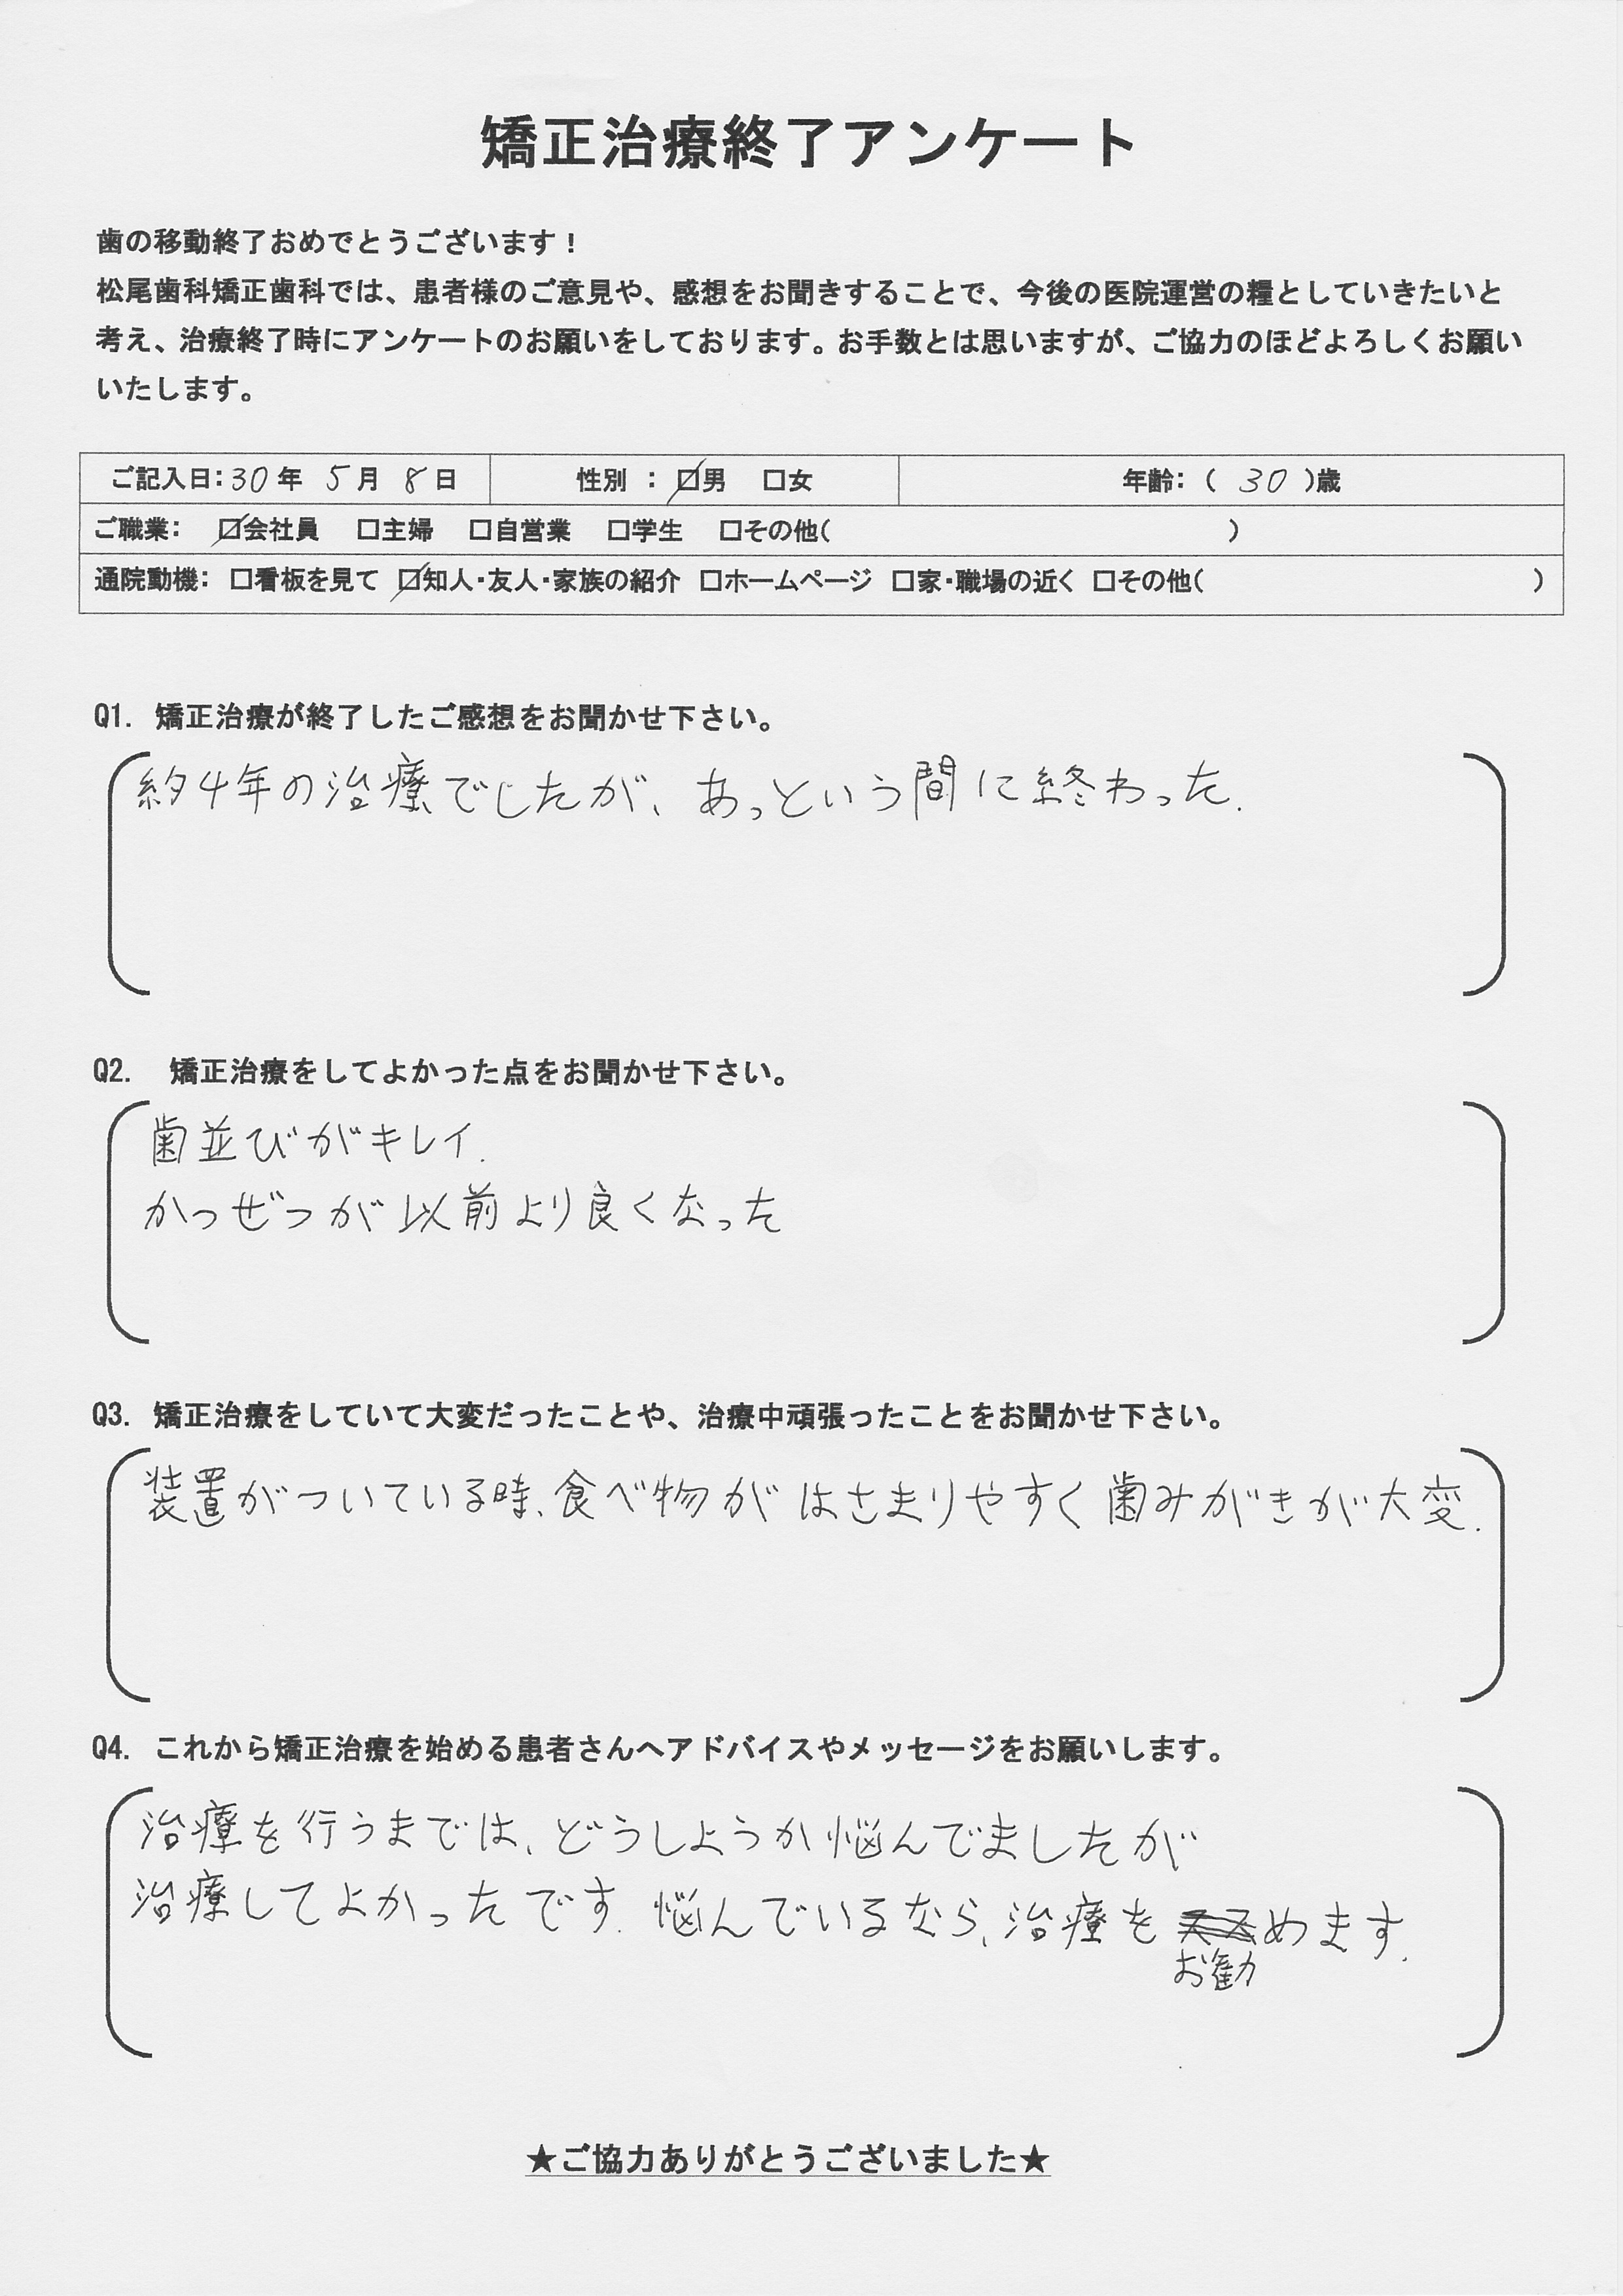 矯正治療終了アンケート
歯の移動終了おめでとうございます！
松尾歯科矯正歯科では、患者様のご意見や、感想をお聞きすることで、今後の医院運営の糧としていきたいと
考え、治療終了時にアンケートのお願いをしております。お手数とは思いますが、ご協力のほどよろしくお願い
いたします。
ご記入日：30年 5月 8日 性別 ： ☑男 □女 年齢：（ 30 ）歳
ご職業： ☑会社員 □主婦 □自営業 □学生 □その他（ ）
通院動機： □看板を見て ☑知人・友人・家族の紹介 □ホームページ □家・職場の近く □その他（ ）
Q1. 矯正治療が終了したご感想をお聞かせ下さい。
約4年の治療でしたが、あっという間に終わった.
Q2. 矯正治療をしてよかった点をお聞かせ下さい。
歯並びがキレイ.
かつぜつが以前より良くなった
Q3. 矯正治療をしていて大変だったことや、治療中頑張ったことをお聞かせ下さい。
装置がついている時、食べ物がはさまりやすく歯みがきが大変.
Q4. これから矯正治療を始める患者さんへアドバイスやメッセージをお願いします。
治療を行うまでは、どうしようか悩んでましたが
治療してよかったです. 悩んでいるなら、治療をめます.
お勧
★ご協力ありがとうございました★